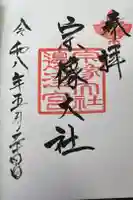 奉拝
宗像大社
宗像大社
邊津宮
令和八年五月二十四日